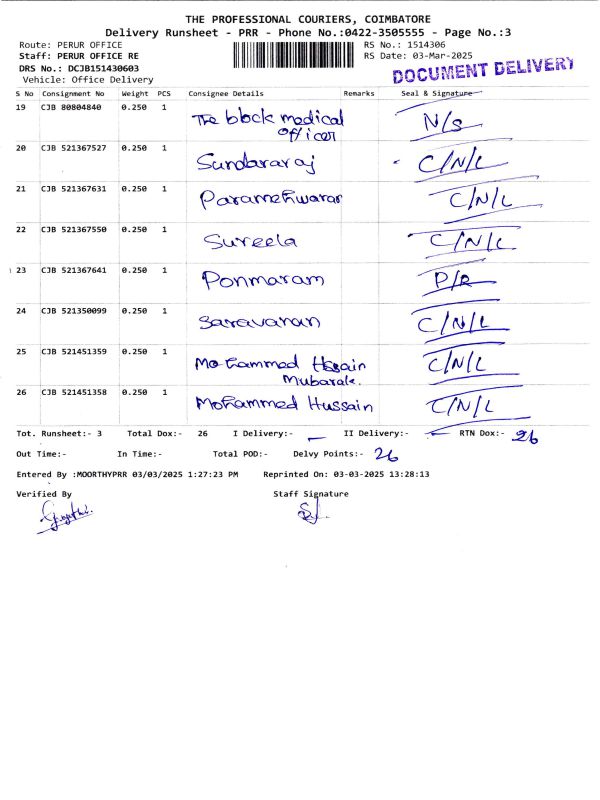 THE PROFESSIONAL COURIERS, COIMBATORE
Delivery Runsheet - PRR - Phone No.:0422-3505555 - Page No.:3
Route: PERUR OFFICE RS No.: 1514306
Staff: PERUR OFFICE RE RS Date: 03-Mar-2025
DRS No.: DCJB151430603 DOCUMENT DELIVERY
Vehicle: Office Delivery
S No Consignment No Weight PCS Consignee Details Remarks Seal & Signature
19 CJB 80804840 0.250 1 The block medical N/S
officer
20 CJB 521367527 0.250 1 Sundararaj C/N/L
21 CJB 521367631 0.250 1 Parameshwaran C/N/L
22 CJB 521367550 0.250 1 Sureela C/N/L
23 CJB 521367641 0.250 1 Ponmaram P/R
24 CJB 521350099 0.250 1 Saravanan C/N/L
25 CJB 521451359 0.250 1 Mohammed Hosain C/N/L
Mubarak.
26 CJB 521451358 0.250 1 Mohammed Hussain C/N/L
Tot. Runsheet:- 3 Total Dox:- 26 I Delivery:- — II Delivery:- — RTN Dox:- 26
Out Time:- In Time:- Total POD:- Delvy Points:- 26
Entered By :MOORTHYPRR 03/03/2025 1:27:23 PM Reprinted On: 03-03-2025 13:28:13
Verified By Staff Signature